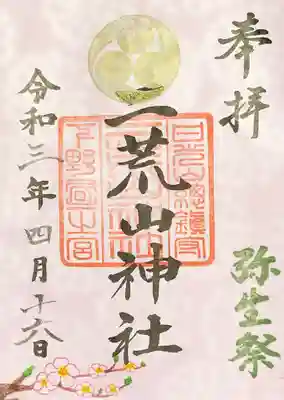 奉拝
弥生祭
二荒山神社
日光山総鎮守
下野国一之宮
令和三年四月十六日